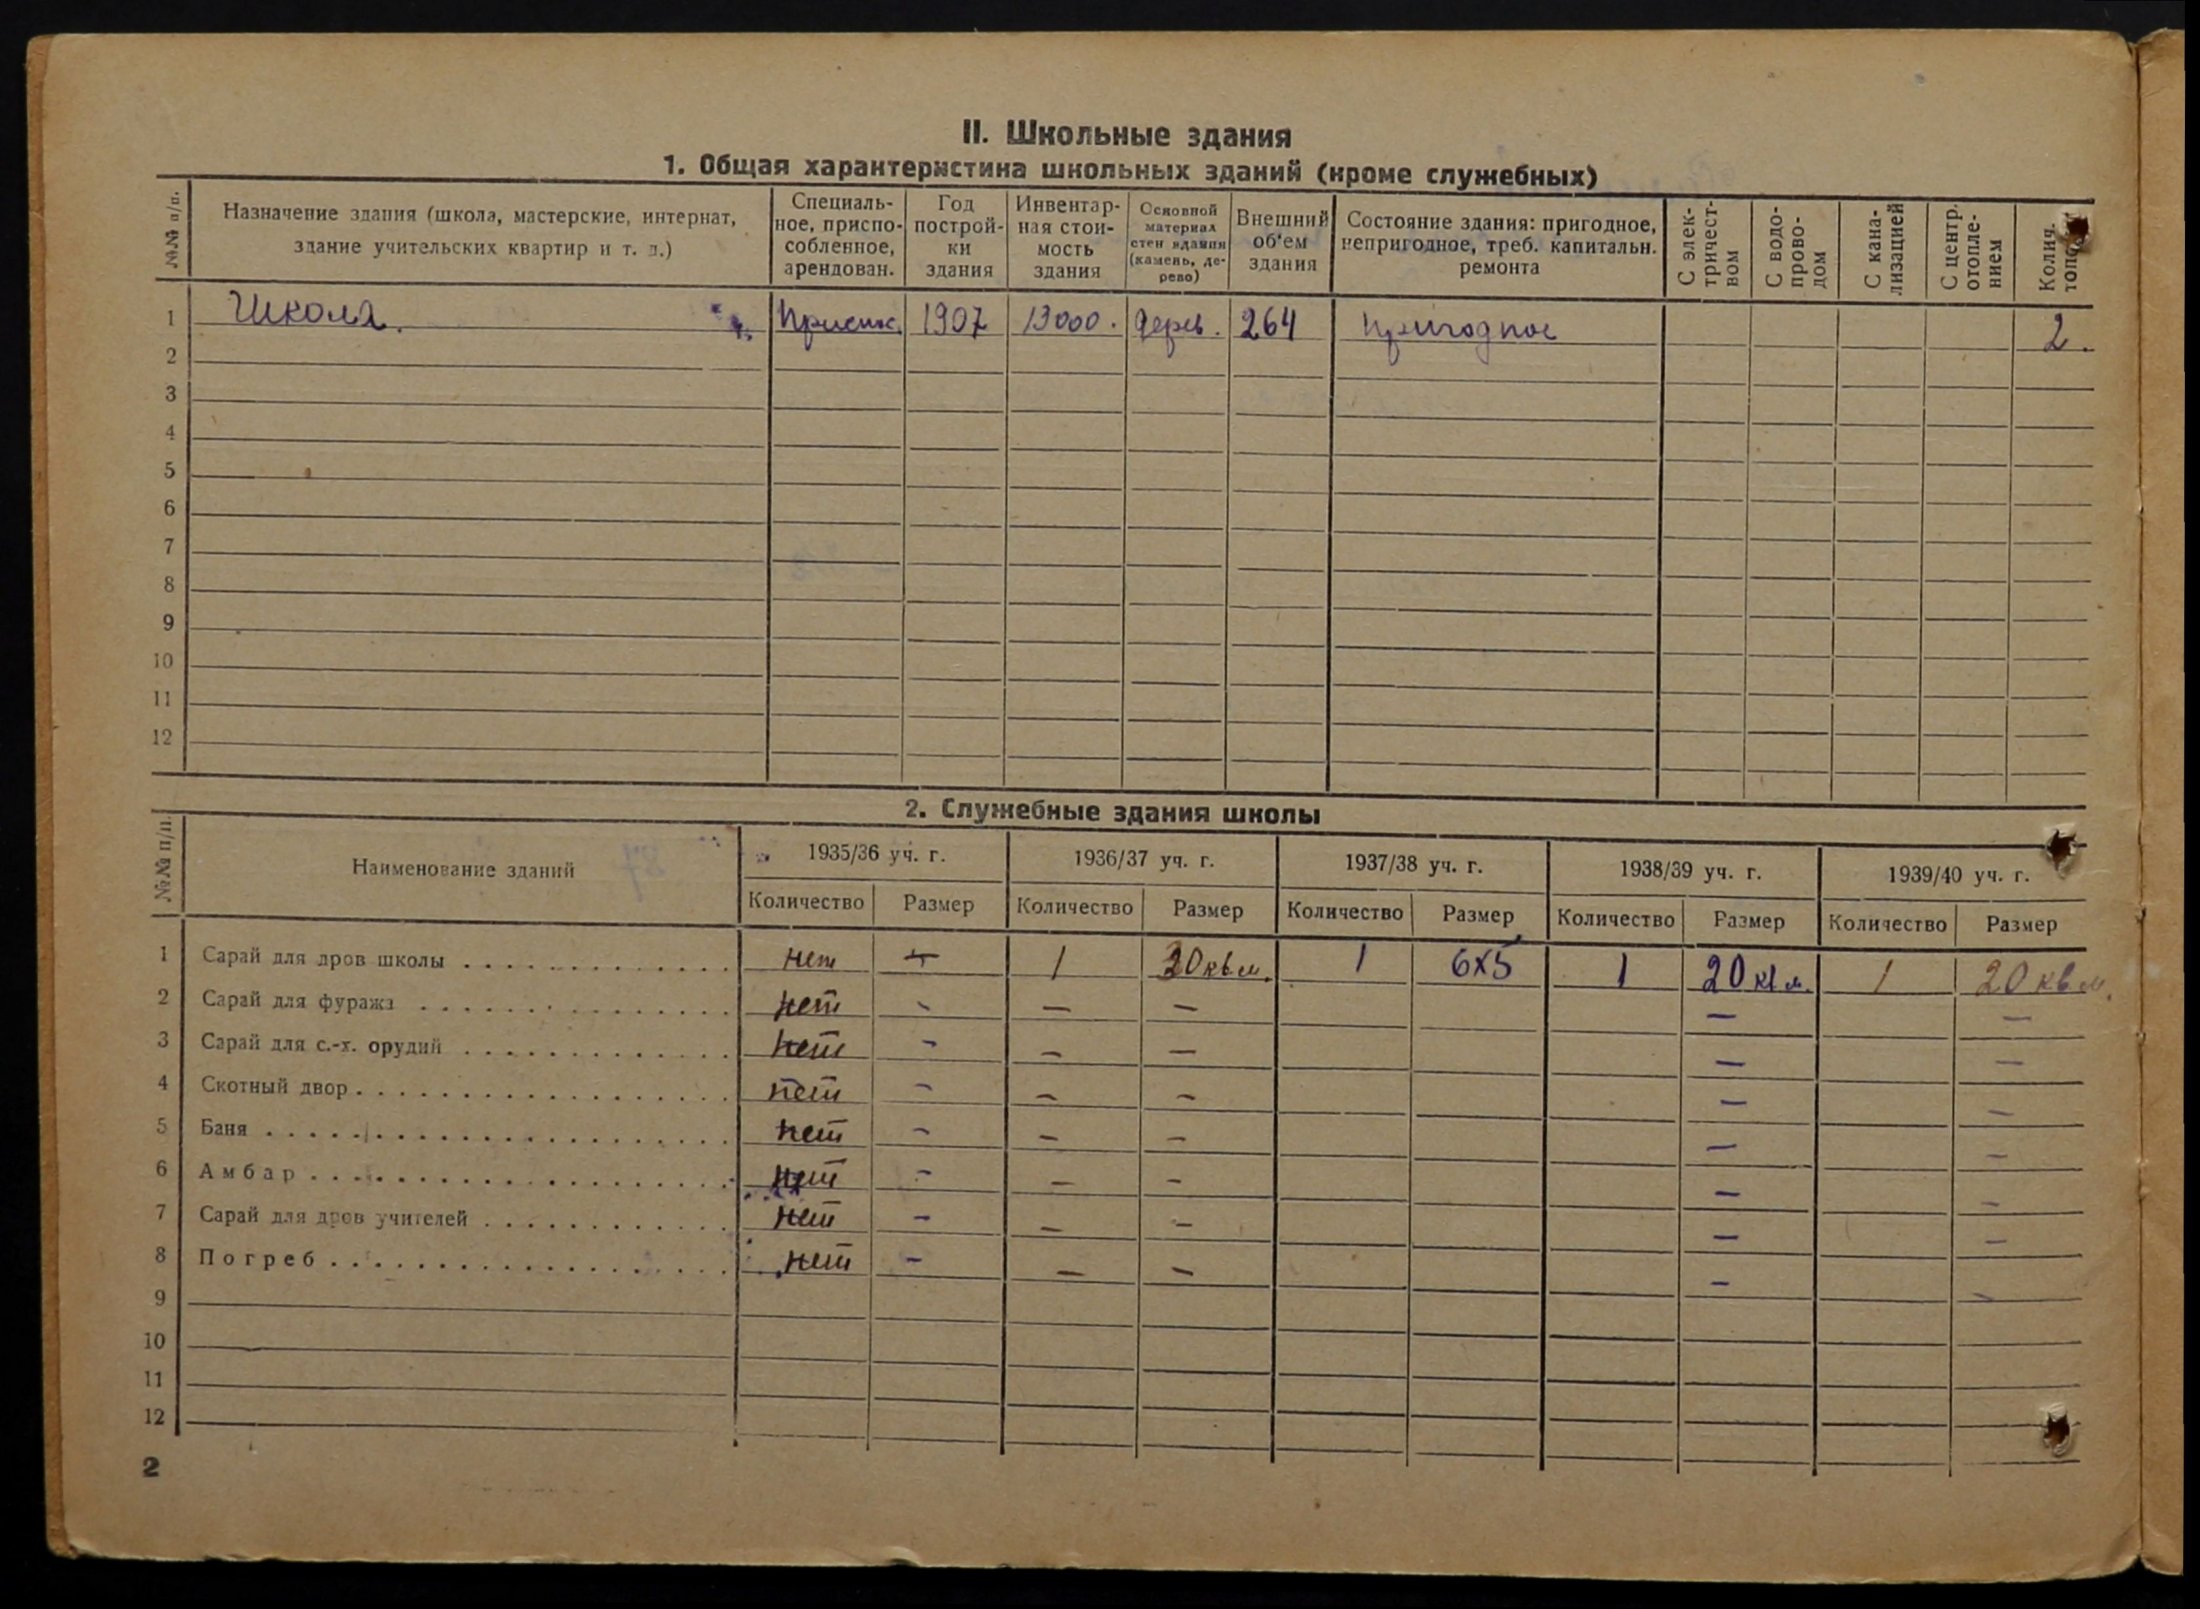 II. Школьные здания
1. Общая характеристика школьных зданий (кроме служебных)
№№ п/п. Назначение здания (школа, мастерские, интернат, здание учительских квартир и т. д.) Специальное, приспособленное, арендован. Год постройки здания Инвентарная стоимость здания Основной материал стен здания (камень, дерево) Внешний об'ем здания Состояние здания: пригодное, непригодное, треб. капитальн. ремонта С электричеством С водопроводом С канализацией С центр. отоплением Колич.
1 Школа. Приспос. 1907 13000. Дерев. 264 пригодное 2.
2
3
4
5
6
7
8
9
10
11
12
2. Служебные здания школы
№№ п/п. Наименование зданий 1935/36 уч. г. 1936/37 уч. г. 1937/38 уч. г. 1938/39 уч. г. 1939/40 уч. г.
Количество Размер Количество Размер Количество Размер Количество Размер Количество Размер
1 Сарай для дров школы нет — 1 30 кв м. 1 6х5 1 20 кв м. 1 20 кв м.
2 Сарай для фуража нет - — — — —
3 Сарай для с.-х. орудий нет - — — — —
4 Скотный двор нет - — — — —
5 Баня нет - — — — —
6 Амбар нет - — — — —
7 Сарай для дров учителей нет - — — — —
8 Погреб нет - — — — —
9
10
11
12
2